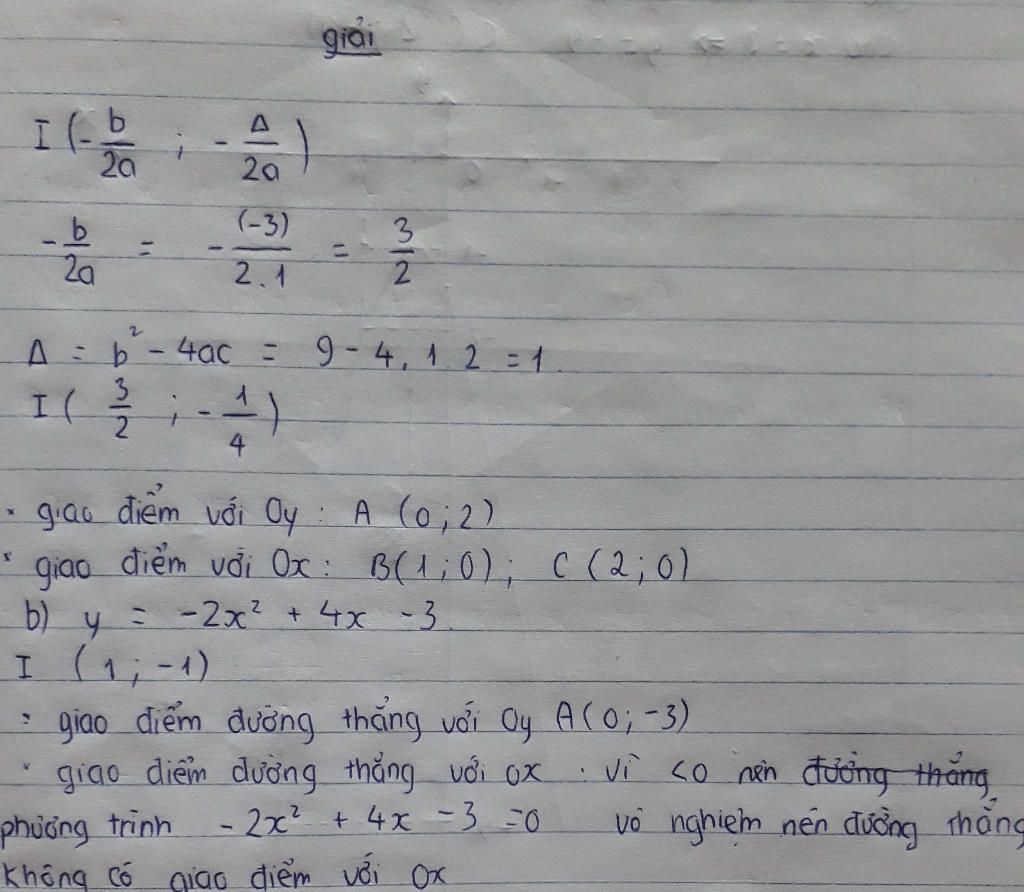 giải
I (-b/2a ; -Δ/2a)
-b/2a = -(-3)/2.1 = 3/2
Δ = b² - 4ac = 9 - 4.1.2 = 1.
I (3/2 ; -1/4)
• giao điểm với Oy : A (0;2)
• giao điểm với Ox : B(1;0); C (2;0)
b) y = -2x² + 4x - 3.
I (1; -1)
• giao điểm đường thẳng với Oy A(0;-3)
• giao điểm đường thẳng với ox . vì <0 nên đường thẳng
phương trình -2x² + 4x - 3 = 0 vô nghiệm nên đường thẳng
không có giao điểm với Ox